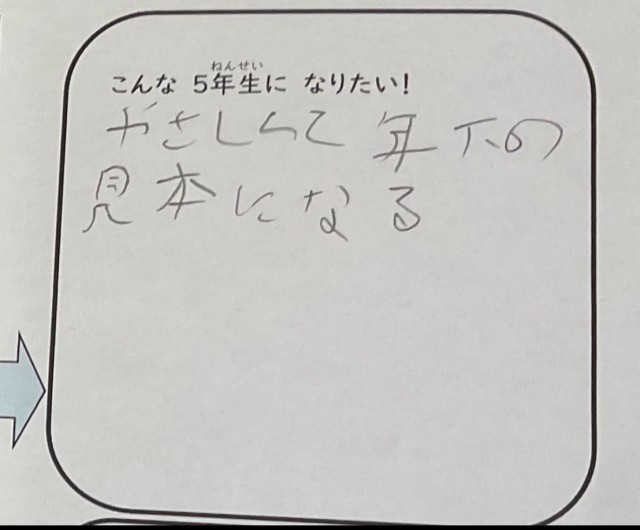 こんな 5年生に なりたい!
やさしくて 年下の
見本になる